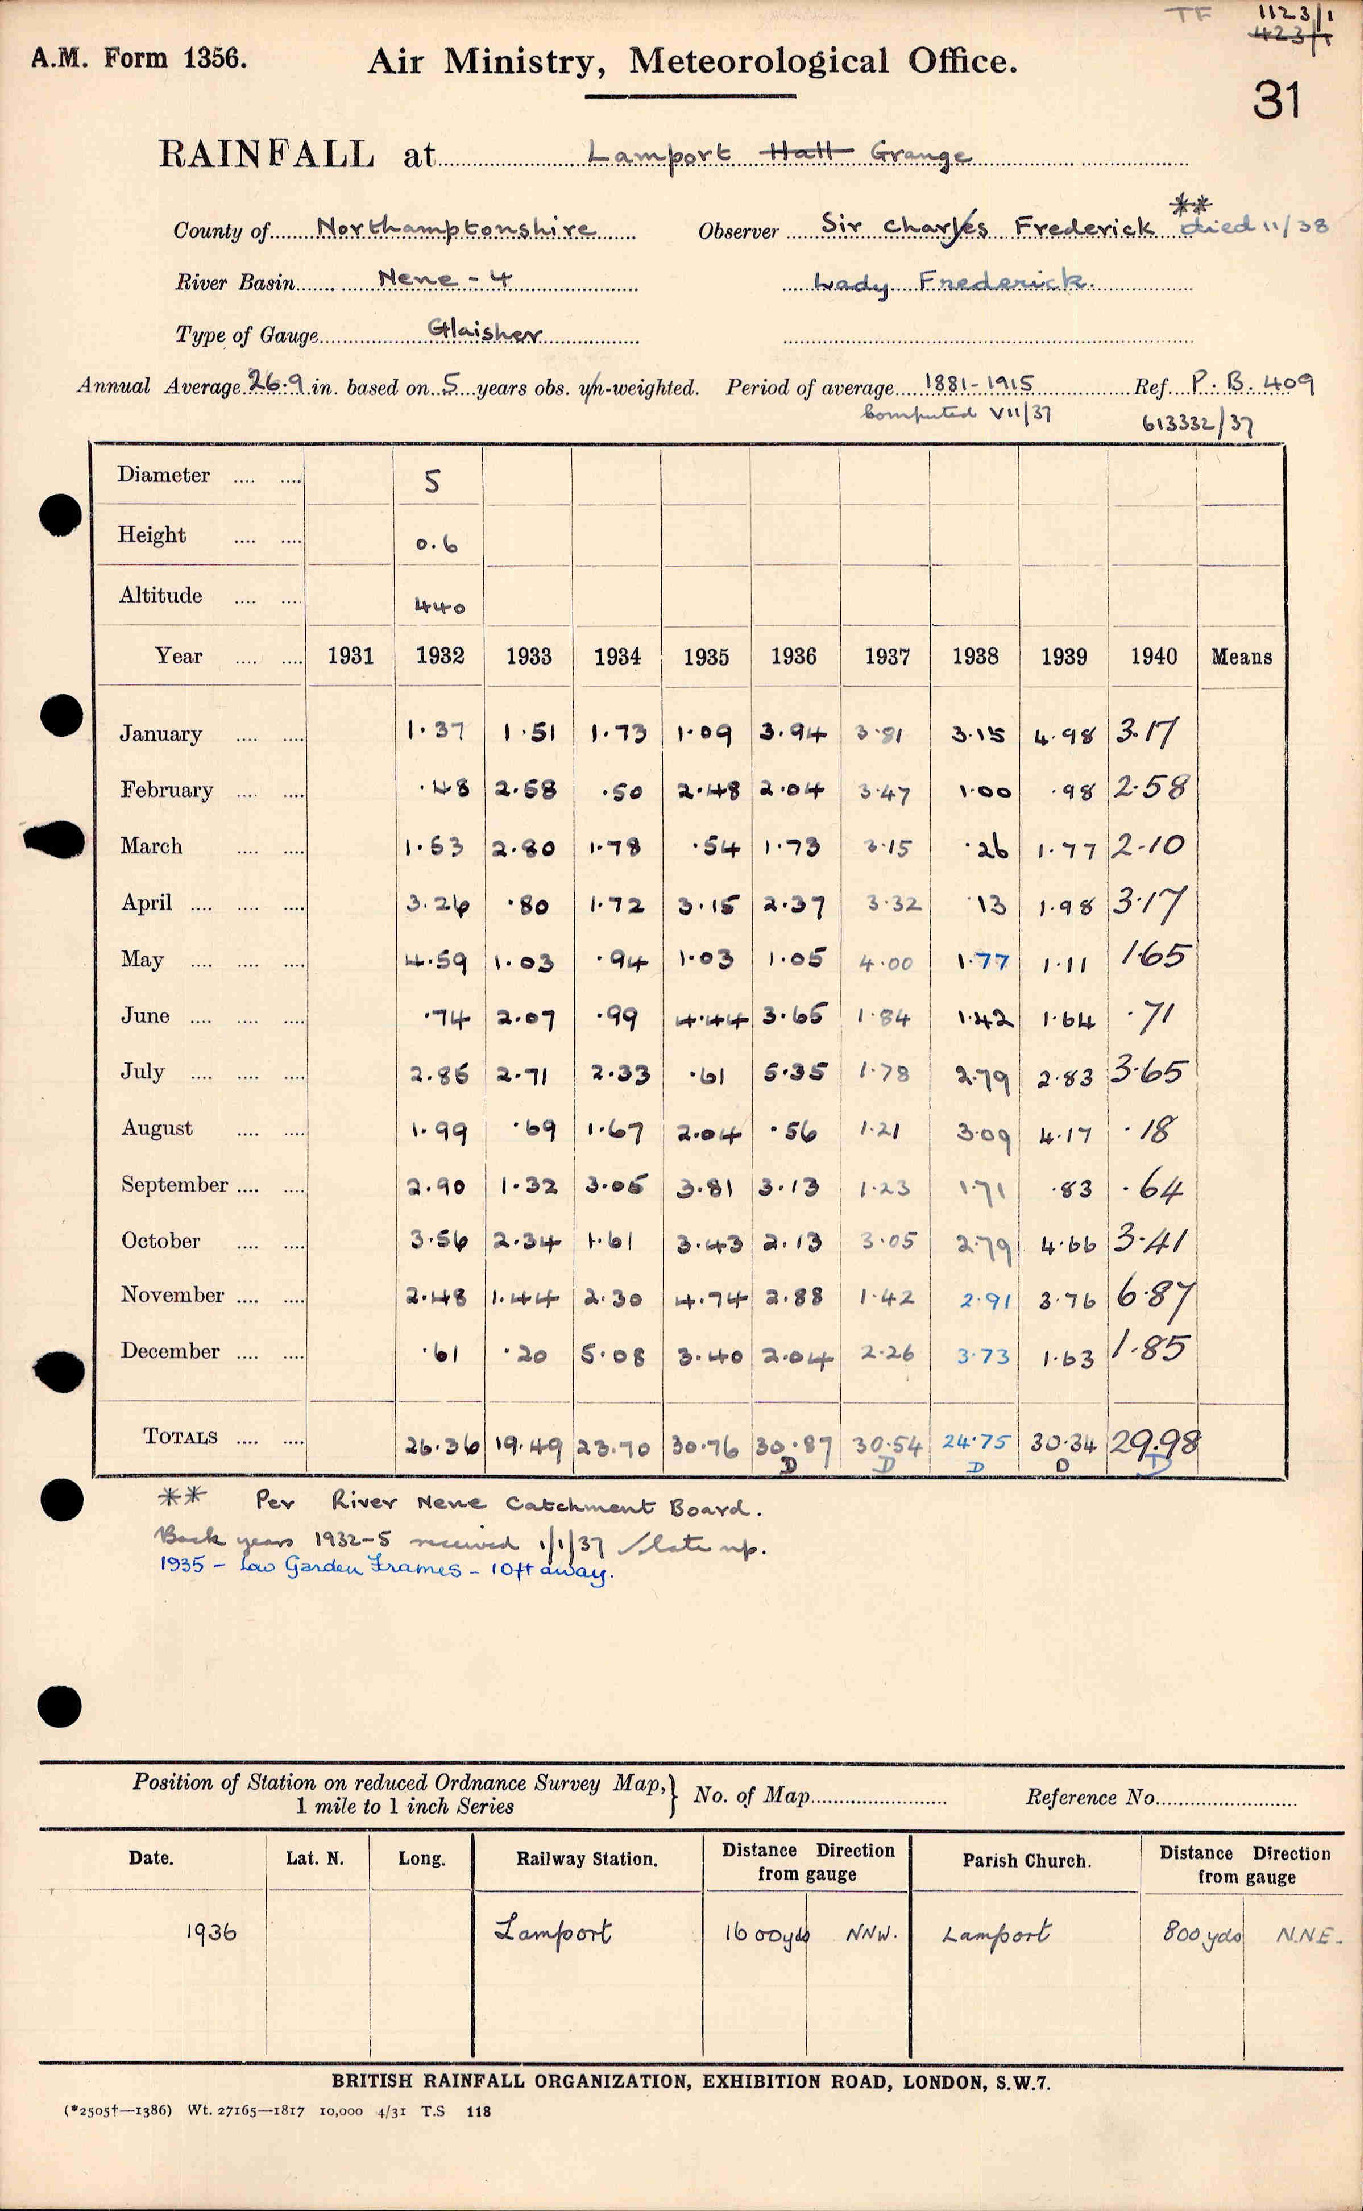 TF 1123/1
423/1
A.M. Form 1356. Air Ministry, Meteorological Office.
31
RAINFALL at Lamport Hall Grange
County of Northamptonshire Observer Sir Charles Frederick ** died 11/38
River Basin Nene - 4 Lady Frederick.
Type of Gauge Glaisher
Annual Average 26.9 in. based on 5 years obs. un-weighted. Period of average 1881-1915 Ref. P.B. 409
Computed VII/37 613332/37
Diameter .... .... 5
Height .... .... 0.6
Altitude .... .... 440
Year .... .... 1931 1932 1933 1934 1935 1936 1937 1938 1939 1940 Means
January .... .... 1.37 1.51 1.73 1.09 3.94 3.81 3.15 4.98 3.17
February .... .... .48 2.58 .50 2.48 2.04 3.47 1.00 .98 2.58
March .... .... 1.53 2.80 1.78 .54 1.73 3.15 .26 1.77 2.10
April .... .... .... 3.26 .80 1.72 3.15 2.37 3.32 .13 1.98 3.17
May .... .... .... 4.59 1.03 .94 1.03 1.05 4.00 1.77 1.11 1.65
June .... .... .... .74 2.07 .99 4.44 3.65 1.84 1.42 1.64 .71
July .... .... .... 2.85 2.71 2.33 .61 5.35 1.78 2.79 2.83 3.65
August .... .... 1.99 .69 1.67 2.04 .56 1.21 3.09 4.17 .18
September .... .... 2.90 1.32 3.05 3.81 3.13 1.23 1.71 .83 .64
October .... .... 3.56 2.34 1.61 3.43 2.13 3.05 2.79 4.66 3.41
November .... .... 2.48 1.44 2.30 4.74 2.88 1.42 2.91 3.76 6.87
December .... .... .61 .20 5.08 3.40 2.04 2.26 3.73 1.63 1.85
TOTALS .... .... 26.36 19.49 23.70 30.76 30.87 30.54 24.75 30.34 29.98
D D D D D
** Per River Nene Catchment Board.
Back years 1932-5 received 1/1/37 late up.
1935 - Low Garden Frames - 10ft away.
Position of Station on reduced Ordnance Survey Map, } No. of Map Reference No.
1 mile to 1 inch Series
Date. Lat. N. Long. Railway Station. Distance Direction from gauge Parish Church. Distance Direction from gauge
1936 Lamport 1600yds NNW. Lamport 800yds N.NE.
BRITISH RAINFALL ORGANIZATION, EXHIBITION ROAD, LONDON, S.W.7.
(*2505†—1386) Wt. 27165—1817 10,000 4/31 T.S 118